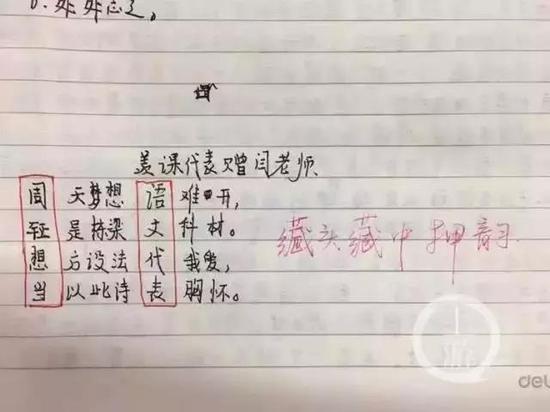 羡课代表赠闫老师
周天梦想语难开,
是栋梁文科材。
想方设法代我爱,
当以此诗表胸怀。
藏头藏中押韵
上游
del